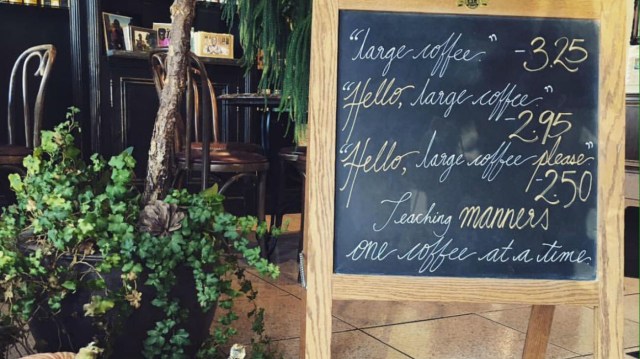 "large coffee." -3.25
"Hello, large coffee."
-2.95
"Hello, large coffee please"
-2.50
Teaching manners
one coffee at a time.